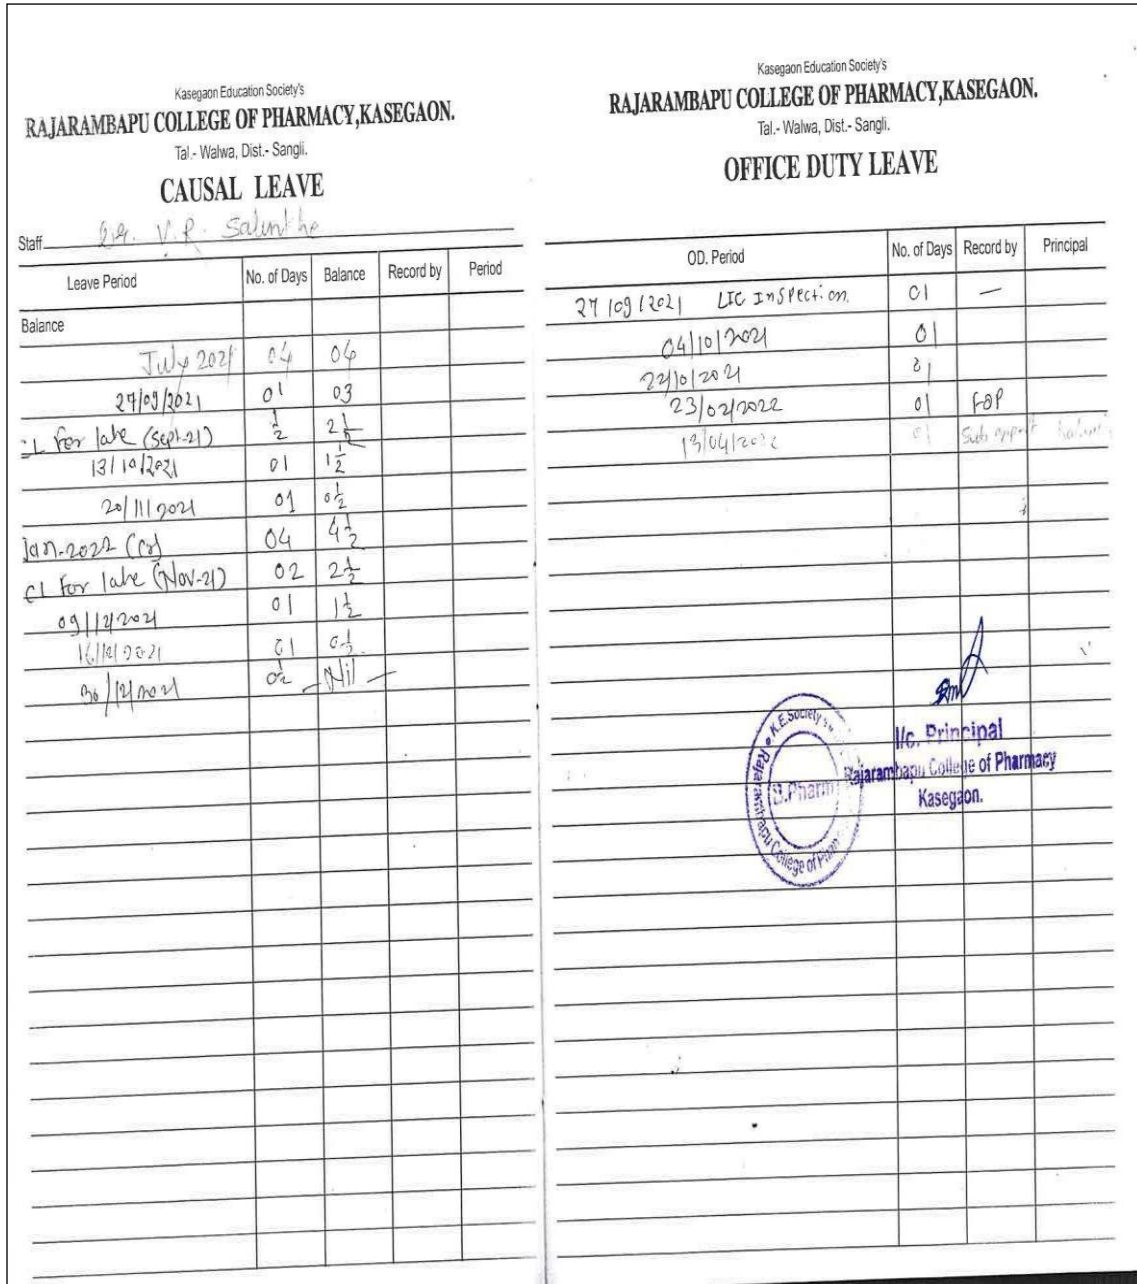 Kasegaon Education Society's
RAJARAMBAPU COLLEGE OF PHARMACY,KASEGAON.
Tal.- Walwa, Dist.- Sangli.
CAUSAL LEAVE
Staff V.R. Salunkhe
Leave Period No. of Days Balance Record by Period
Balance
July 2021 04 04
27/09/2021 01 03
CL For late (Sept-21) 1/2 2 1/2
13/10/2021 01 1 1/2
20/11/2021 01 0 1/2
Jan-2022 (Cr) 04 4 1/2
CL For late (Nov-21) 02 2 1/2
09/12/2021 01 1 1/2
16/12/2021 01 0 1/2
30/12/2021 0 1/2 - Nil -
Kasegaon Education Society's
RAJARAMBAPU COLLEGE OF PHARMACY,KASEGAON.
Tal.- Walwa, Dist.- Sangli.
OFFICE DUTY LEAVE
OD. Period No. of Days Record by Principal
27/09/2021 LIC Inspection. 01 —
04/10/2021 01
22/10/2021 01
23/02/2022 01 FDP
13/04/2022 01 Sub
I/c. Principal
Rajarambapu College of Pharmacy
Kasegaon.
K.E.Society's
Rajarambapu College of Pharm
B.Pharm